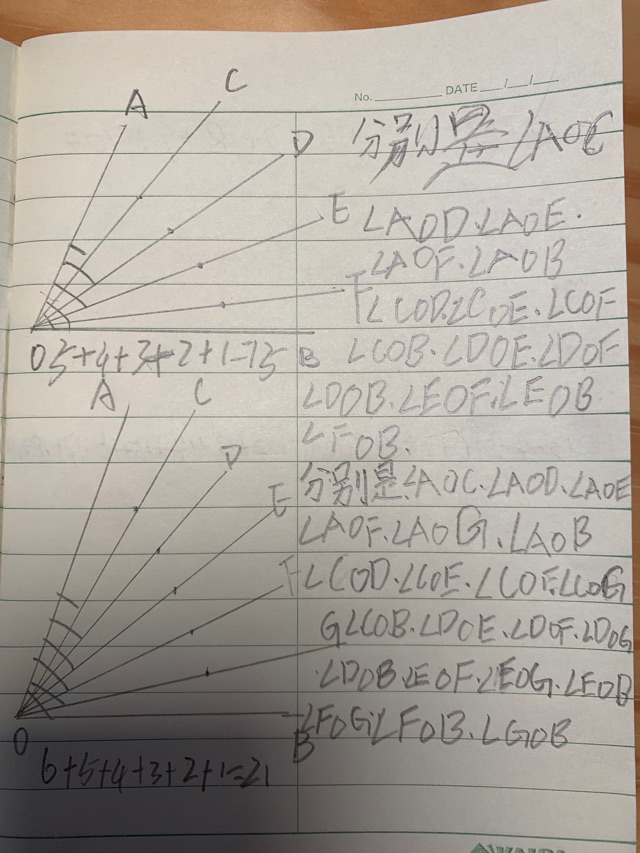 No. DATE / /
A
C
D
E
F
B
O
5+4+3+2+1=15
分别是∠AOC
∠AOD.∠AOE.
∠AOF.∠AOB
∠COD.∠COE.∠COF
∠COB.∠DOE.∠DOF
∠DOB.∠EOF.∠EOB
∠FOB.
A
C
D
E
F
G
B
O
6+5+4+3+2+1=21
分别是∠AOC.∠AOD.∠AOE
∠AOF.∠AOG.∠AOB
∠COD.∠COE.∠COF.∠COG
∠COB.∠DOE.∠DOF.∠DOG
∠DOB.∠EOF.∠EOG.∠EOB
∠FOG.∠FOB.∠GOB